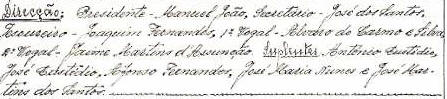 Direcção: Presidente - Manuel João, Secretario - José dos Santos,
Tesoureiro - Joaquim Fernandes, 1º Vogal - Alvaro do Carmo e Silva,
2º Vogal - Jaime Martins d'Assunção. Suplentes António Custódio,
José Custódio, Afonso Fernandes, José Maria Nunes e José Mar-
tins dos Santos.